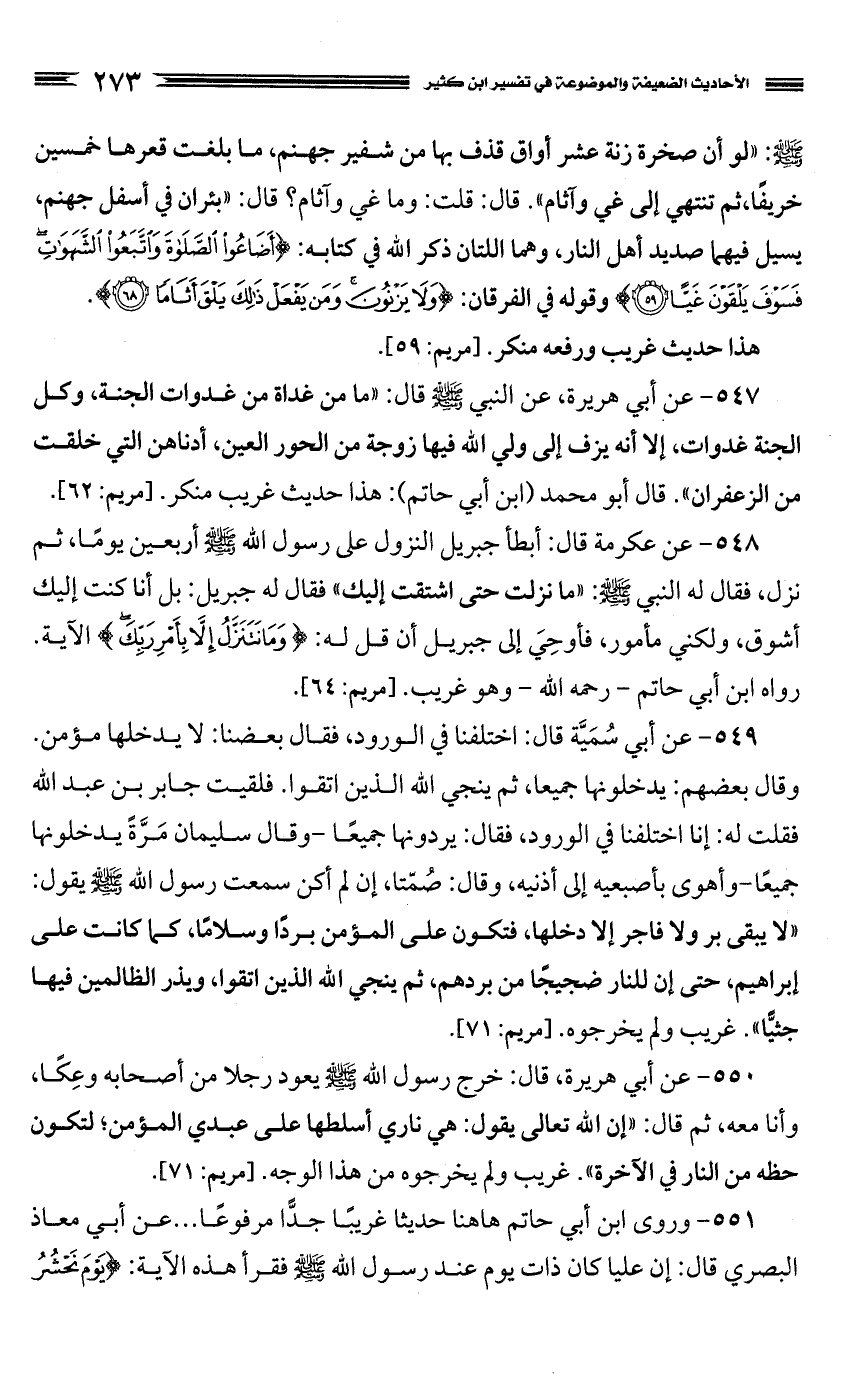 الأحاديث الضعيفة والموضوعة في تفسير ابن كثير ٢٧٣
ﷺ: «لو أن صخرة زنة عشر أواق قذف بها من شفير جهنم، ما بلغت قعرها خمسين
خريفًا،ثم تنتهي إلى غي وآثام». قال: قلت: وما غي وآثام؟ قال: «بئران في أسفل جهنم،
يسيل فيهما صديد أهل النار، وهما اللتان ذكر الله في كتابه: ﴿أَضَاعُوا۟ ٱلصَّلَوٰةَ وَٱتَّبَعُوا۟ ٱلشَّهَوَٰتِ ۖ
فَسَوْفَ يَلْقَوْنَ غَيًّا ٥٩﴾ وقوله في الفرقان: ﴿وَلَا يَزْنُونَ ۚ وَمَن يَفْعَلْ ذَٰلِكَ يَلْقَ أَثَامًا ٦٨﴾.
هذا حديث غريب ورفعه منكر. [مريم: ٥٩].
٥٤٧- عن أبي هريرة، عن النبي ﷺ قال: «ما من غداة من غدوات الجنة، وكل
الجنة غدوات، إلا أنه يزف إلى ولي الله فيها زوجة من الحور العين، أدناهن التي خلقت
من الزعفران». قال أبو محمد (ابن أبي حاتم): هذا حديث غريب منكر. [مريم: ٦٢].
٥٤٨- عن عكرمة قال: أبطأ جبريل النزول على رسول الله ﷺ أربعين يومًا، ثم
نزل، فقال له النبي ﷺ: «ما نزلت حتى اشتقت إليك» فقال له جبريل: بل أنا كنت إليك
أشوق، ولكني مأمور، فأوحِيَ إلى جبريل أن قل له: ﴿وَمَا نَتَنَزَّلُ إِلَّا بِأَمْرِ رَبِّكَ ۖ﴾ الآية.
رواه ابن أبي حاتم - رحمه الله - وهو غريب. [مريم: ٦٤].
٥٤٩- عن أبي سُمَيَّة قال: اختلفنا في الورود، فقال بعضنا: لا يدخلها مؤمن.
وقال بعضهم: يدخلونها جميعا، ثم ينجي الله الذين اتقوا. فلقيت جابر بن عبد الله
فقلت له: إنا اختلفنا في الورود، فقال: يردونها جميعًا -وقال سليمان مَرَّةً يدخلونها
جميعًا-وأهوى بأصبعيه إلى أذنيه، وقال: صُمّتا، إن لم أكن سمعت رسول الله ﷺ يقول:
«لا يبقى بر ولا فاجر إلا دخلها، فتكون على المؤمن بردًا وسلامًا، كما كانت على
إبراهيم، حتى إن للنار ضجيجًا من بردهم، ثم ينجي الله الذين اتقوا، ويذر الظالمين فيها
جثيًّا». غريب ولم يخرجوه. [مريم: ٧١].
٥٥٠- عن أبي هريرة، قال: خرج رسول الله ﷺ يعود رجلا من أصحابه وعِكًا،
وأنا معه، ثم قال: «إن الله تعالى يقول: هي ناري أسلطها على عبدي المؤمن؛ لتكون
حظه من النار في الآخرة». غريب ولم يخرجوه من هذا الوجه. [مريم: ٧١].
٥٥١- وروى ابن أبي حاتم هاهنا حديثا غريبًا جدًّا مرفوعًا...عن أبي معاذ
البصري قال: إن عليا كان ذات يوم عند رسول الله ﷺ فقرأ هذه الآية: ﴿يَوْمَ نَحْشُرُ